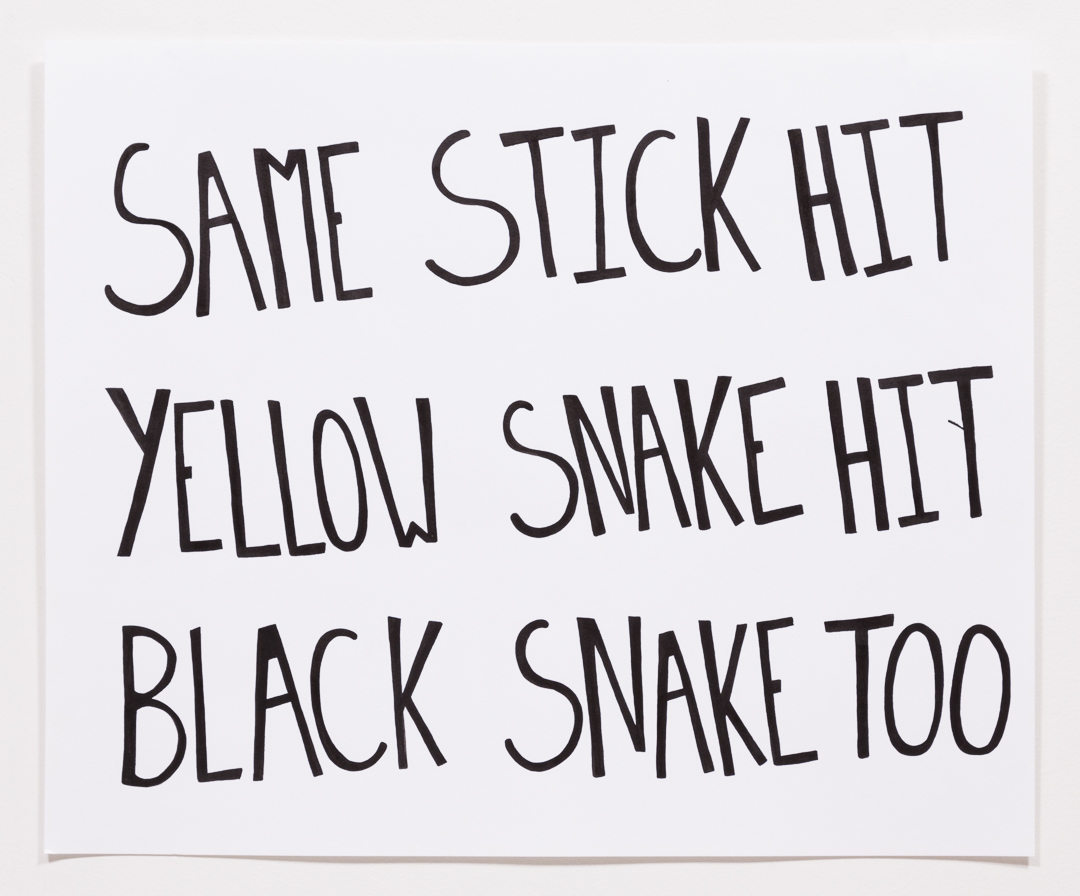 SAME STICK HIT
YELLOW SNAKE HIT
BLACK SNAKE TOO